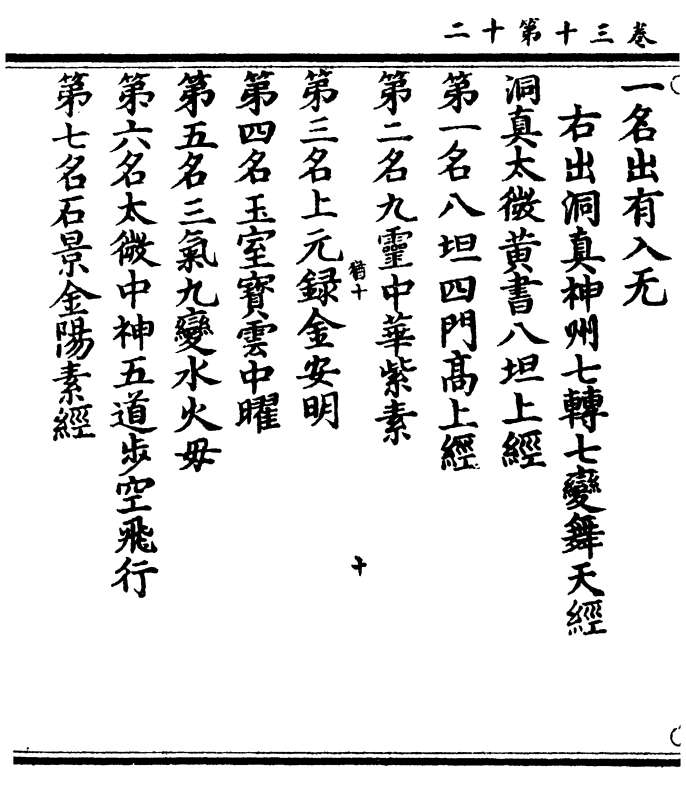 卷三十第十二
一名出有入无
右出洞真神州七轉七變舞天經
洞真太微黄書八坦上經
第一名八坦四門髙上經
第二名九靈中華紫素
猶十
十
第三名上元録金安明
第四名玉室寳雲中曜
第五名三氣九變水火毋
第六名太微中神五道步空飛行
第七名石景金陽素經